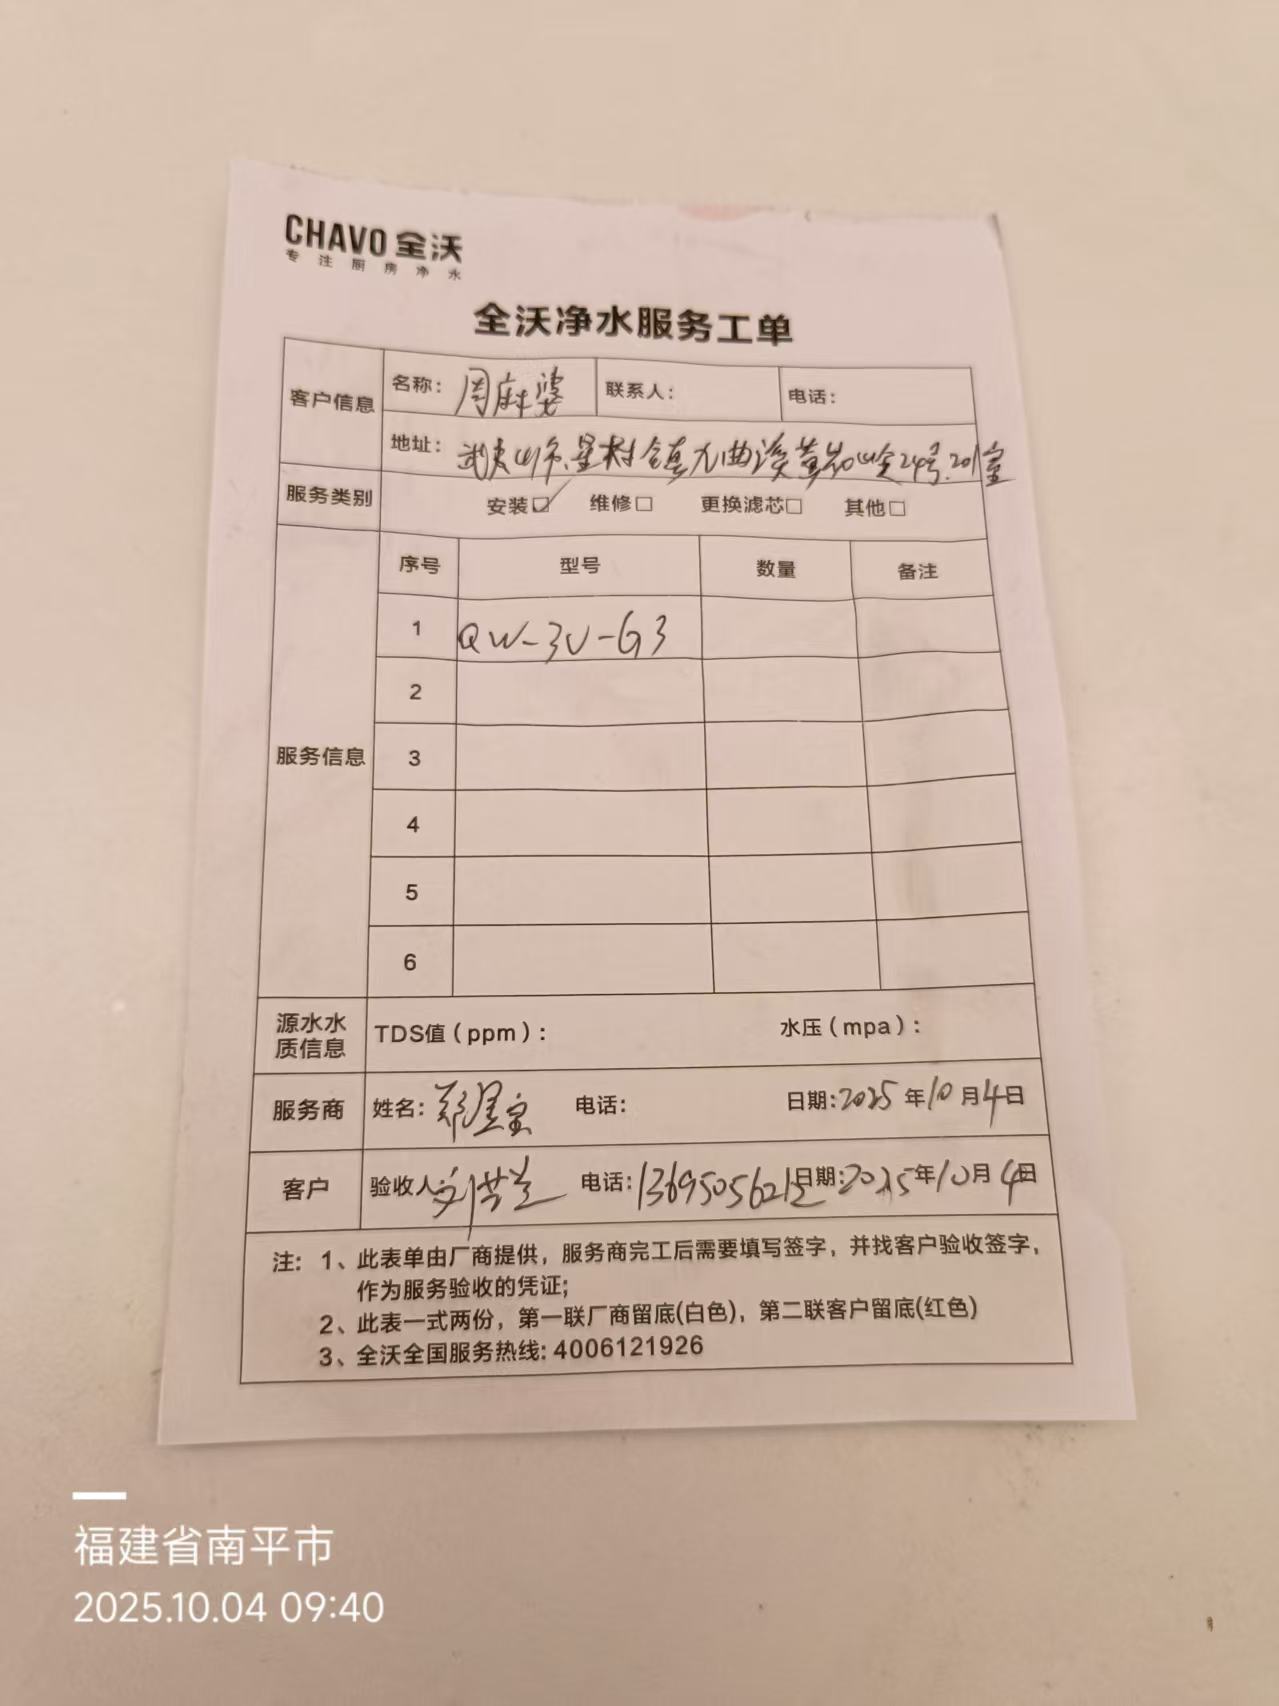 CHAVO 全沃
专注厨房净水
全沃净水服务工单
客户信息 名称：周麻婆 联系人： 电话：
地址：武夷山市.星村镇九曲溪黄岩岭24号.201室
服务类别 安装☑ 维修□ 更换滤芯□ 其他□
服务信息 序号 型号 数量 备注
1 QW-3U-G3
2
3
4
5
6
源水水质信息 TDS值（ppm）： 水压（mpa）：
服务商 姓名：郑星宝 电话： 日期：2025年10月4日
客户 验收人： 电话：日期：2025年10月4日
注：1、此表单由厂商提供，服务商完工后需要填写签字，并找客户验收签字，
作为服务验收的凭证；
2、此表一式两份，第一联厂商留底(白色)，第二联客户留底(红色)
3、全沃全国服务热线：4006121926
福建省南平市
2025.10.04 09:40